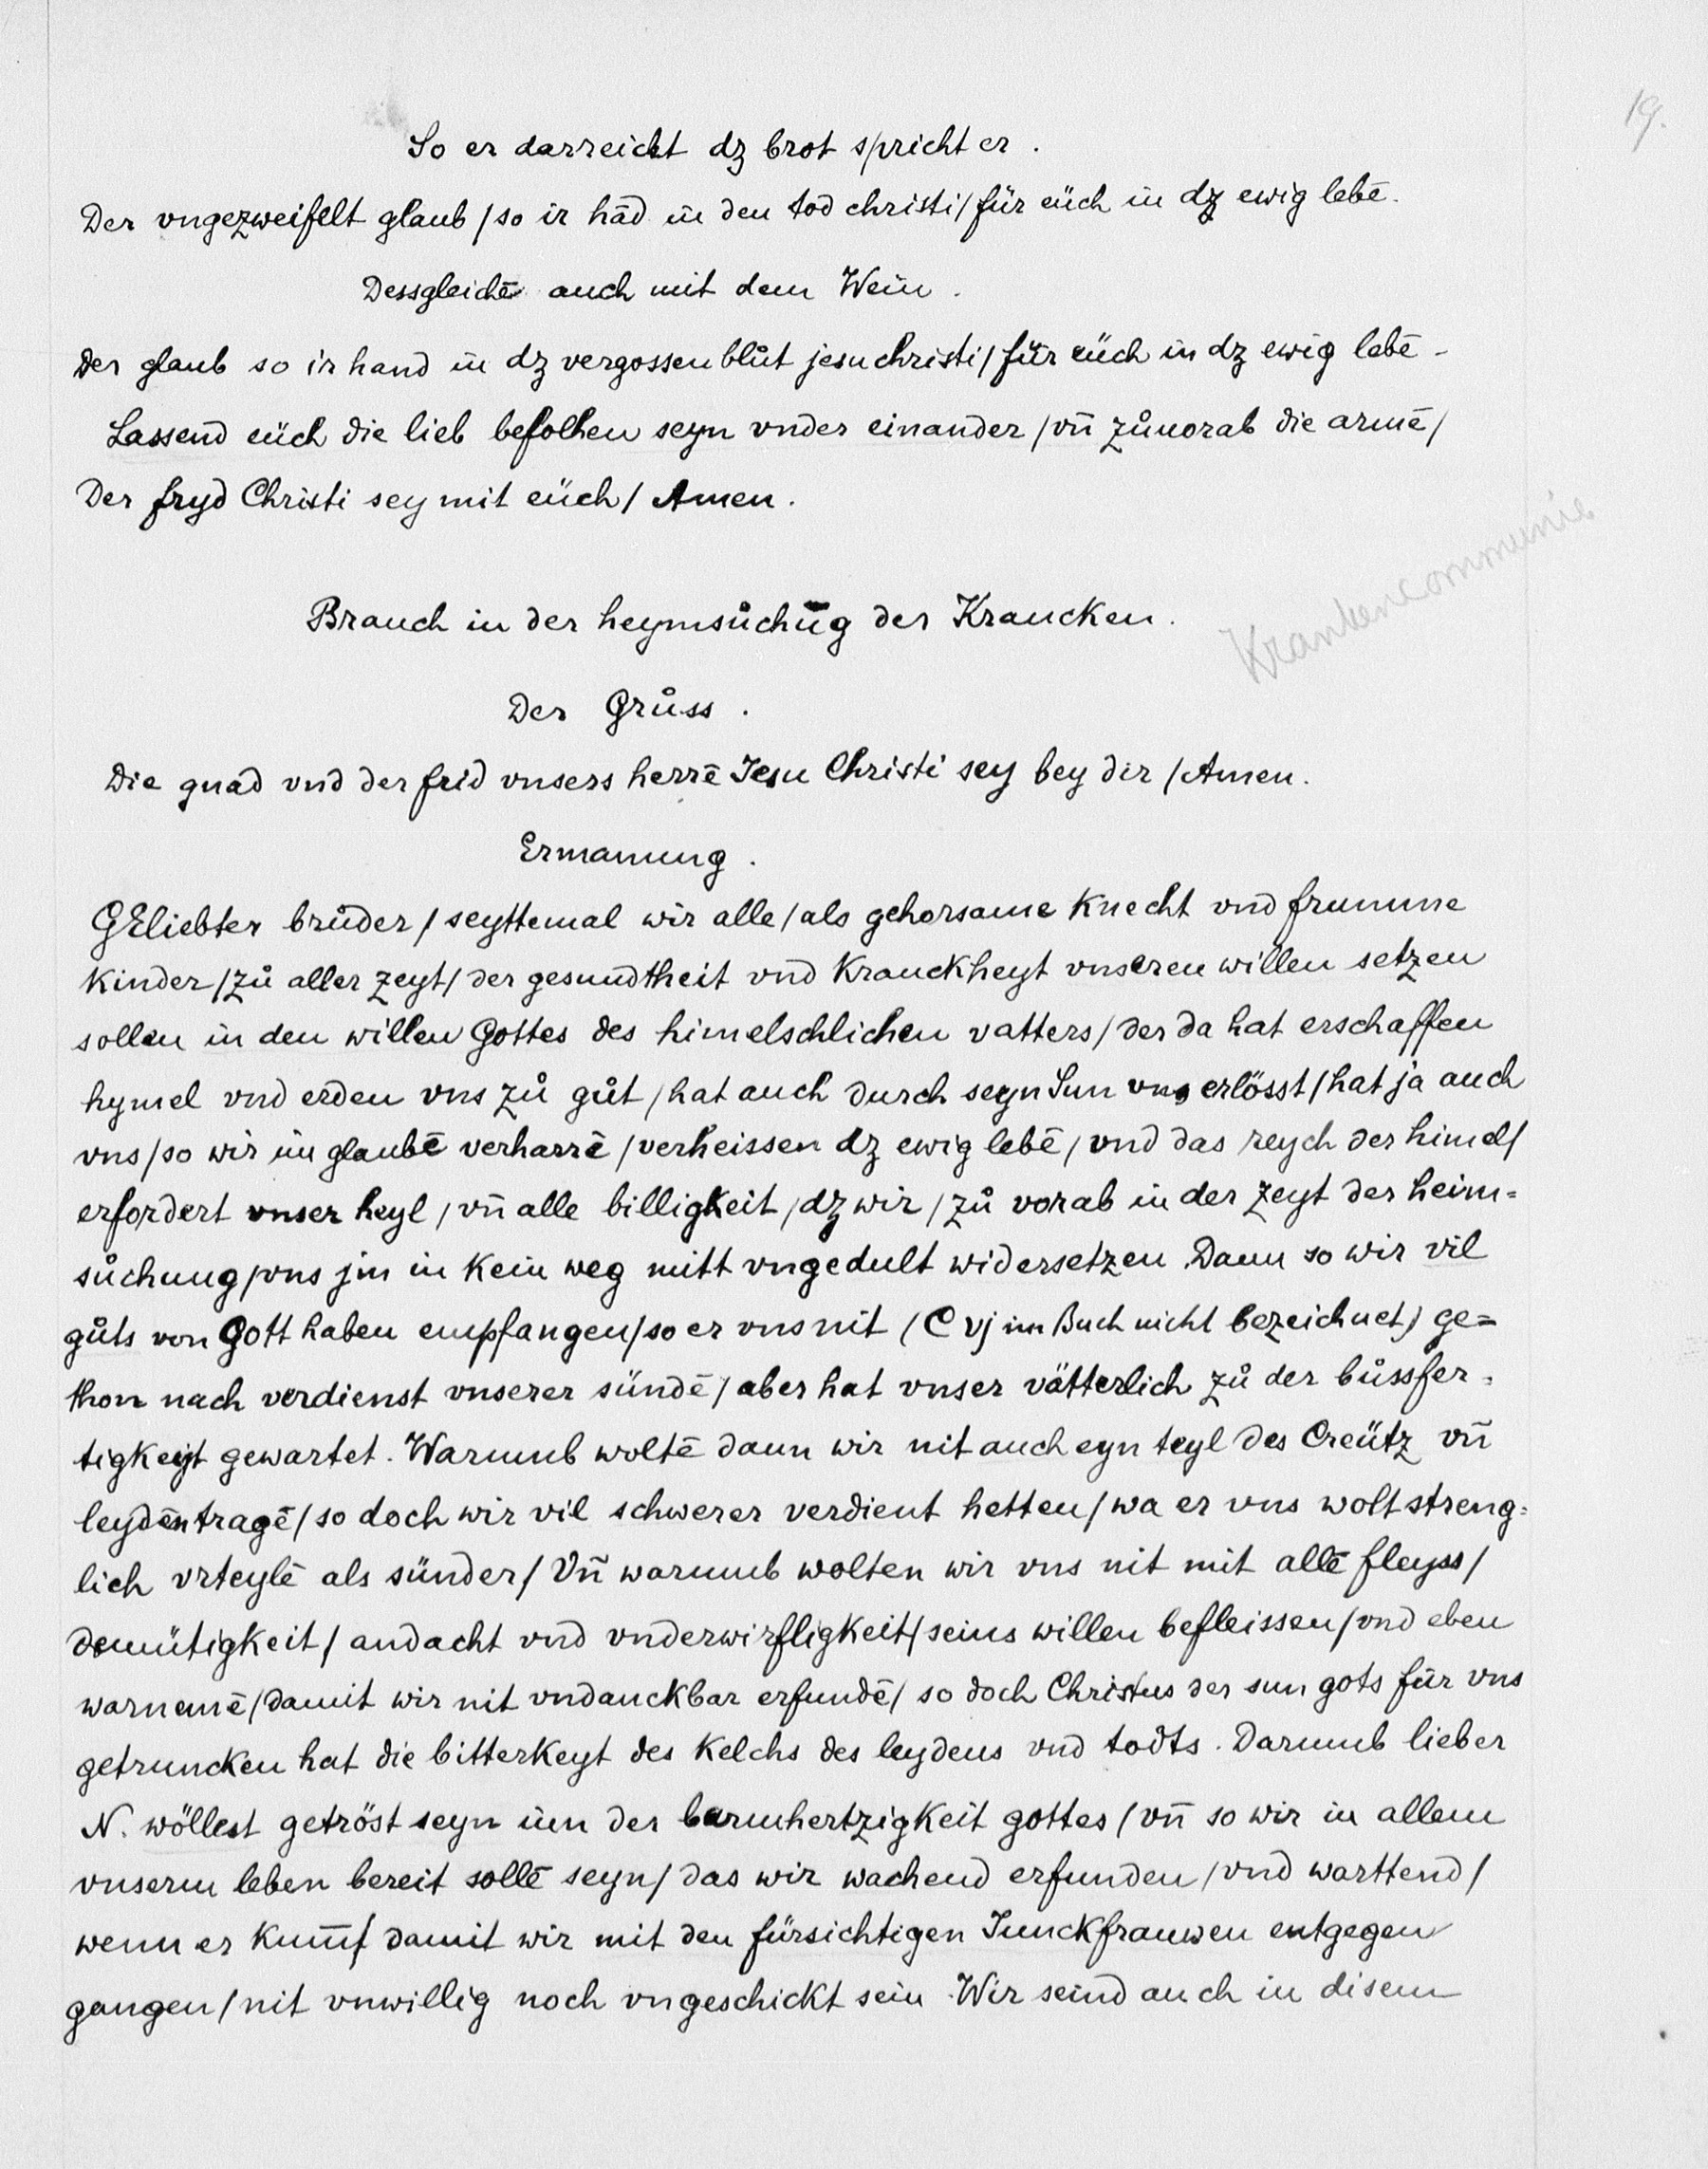 19.
So er darreicht dz brot spricht er.
Der vngezweifelt glaub / so ir hād in den tod christi / für eüch in dz ewig lebē.
Dessgleichē auch mit dem Wein.
Der glaub so ir hand in dz vergossen blůt jesu christi / für eüch in dz ewig lebē.
Lassend eüch die lieb befolhen seyn vnder einander / vn̄ zůuorab die armē /
Der fryd Christi sey mit eüch / Amen.
Krankencommunie
Brauch in der heymsůchūg der Krancken.
Der Grůss.
Die gnad vnd der frid vnsers herrē Jesu Christi sey bey dir / Amen.
Ermanung.
GEliebter brůder / seyttemal wir alle / als gehorsame Knecht vnd frumme
Kinder / zů aller zeyt / der gesundtheit vnd Kranckheyt vnseren willen setzen
sollen in den willen Gottes des himelschlichen vatters / der da hat erschaffen
hymel vnd erden vns zů gůt / hat auch durch seyn Sun vns erlösst / hat ja auch
vns / so wir im glaubē verharrē / verheissen dz ewig lebē / vnd das reych der himel /
erfordert vnser heyl / vn̄ alle billigkeit / dz wir / zů vorab in der zeyt der heim=
sůchung / vns jm in Kein weg mitt vngedult widersetzen Dann so wir vil
gůts von Gott haben empfangen / so er vns nit (C vj im Buch nicht bezeichnet) ge=
thon nach verdienst vnserer sündē / aber hat vnser vätterlich zů der bůssfer=
tigkeyt gewartet. Warumb woltē dann wir nit auch eyn teyl des Creütz vn̄
leydēn tragē / so doch wir vil schwerer verdient hetten / wa er vns wolt streng=
lich vrteylē als sünder / Vn̄ warumb wolten wir vns nit mit allē fleyss /
demütigkeit / andacht vnd vnderwirfligkeit / seins willen befleissen / vnd eben
warnemē / damit wir nit vndanckbar erfundē / so doch Christus der sun gots für vns
getruncken hat die bitterkeyt des Kelchs des leydens vnd todts. Darumb lieber
N. wöllest getröst seyn inn der barmhertzigkeit gottes / vn̄ so wir in allem
vnserm leben bereit sollē seyn / das wir wachend erfunden / vnd warttend /
wenn er Kum̄t damit wir mit den fürsichtigen Junckfrauwen entgegen
gangen / nit vnwillig noch vngeschickt sein. Wir seind auch in disem